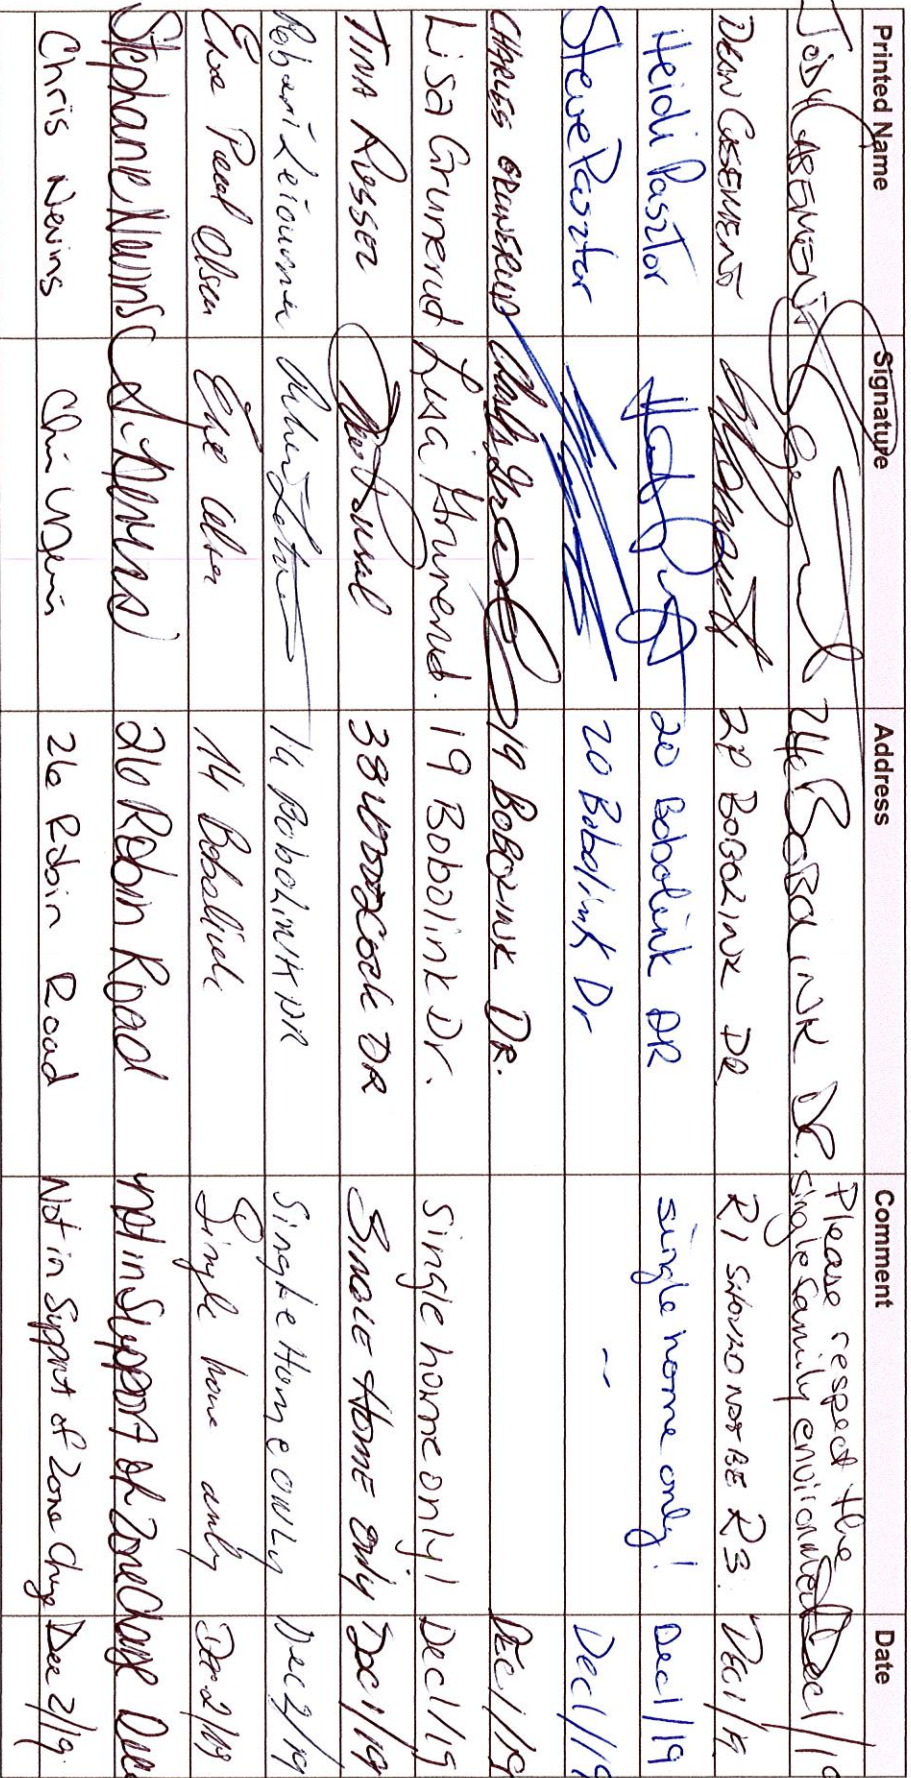 Printed Name Signature Address Comment Date
JODY CASEMENT 24 BOBOLINK DR. Please respect the single family environment Dec 1/19
DEAN CASEMENT BOBOLINK DR R1 SHOULD NOT BE R3. DEC 1/19
Heidi Pasztor 20 Bobolink DR single home only! Dec 1/19
Steve Pasztor 20 Bobolink Dr ~ Dec 1/19
CHARLES GRUNERUD 19 BOBOLINK DR. DEC 1/19
Lisa Grunerud Lisa Grunerud. 19 Bobolink Dr. Single home only! Dec 1/19
TINA RUSSEL 38 WOODCOCK DR SINGLE HOME ONLY DEC 1/19
14 BOBOLINK DR Single Home ONLY Dec 2/19
Olsen 14 Bobolink Single home only Dec 2/19
Stephanie Nevins 26 Robin Road not in Support of Zone Change Dec
Chris Nevins 26 Robin Road Not in Support of Zone Chnge Dec 2/19.